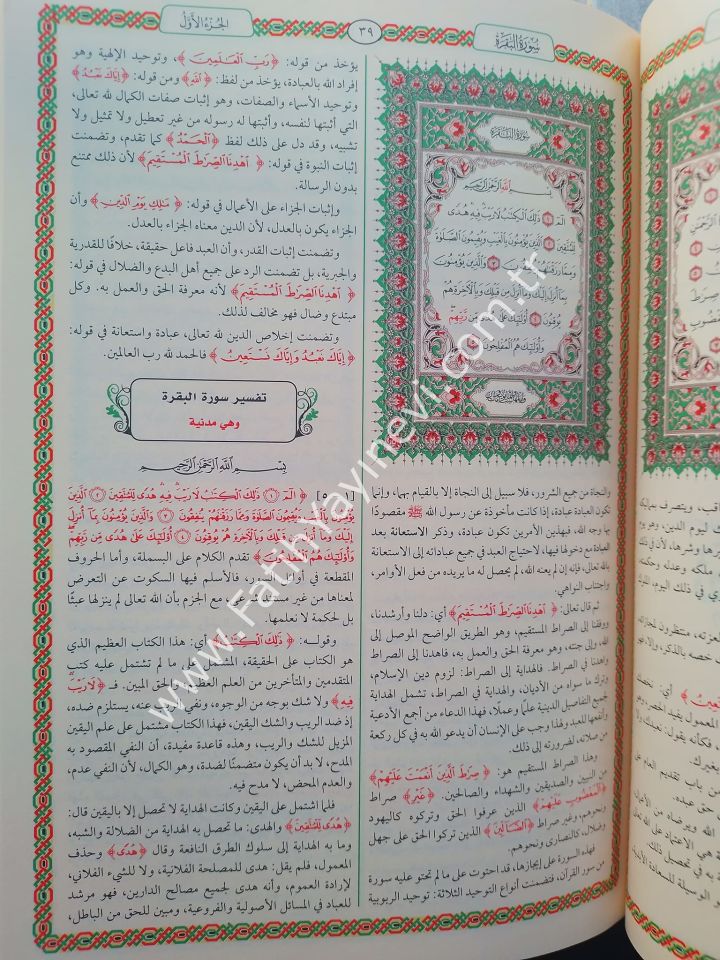 سُورَةُ البَقَرَةِ
٣٩
الجُزءُ الأَوَّلُ
سُورَةُ البَقَرَةِ
بِسْمِ اللَّهِ الرَّحْمَٰنِ الرَّحِيمِ
الٓمٓ ١ ذَٰلِكَ الْكِتَٰبُ لَا رَيْبَ فِيهِ هُدًى
لِّلْمُتَّقِينَ ٢ الَّذِينَ يُؤْمِنُونَ بِالْغَيْبِ وَيُقِيمُونَ الصَّلَوٰةَ
وَمِمَّا رَزَقْنَٰهُمْ يُنفِقُونَ ٣ وَالَّذِينَ يُؤْمِنُونَ
بِمَا أُنزِلَ إِلَيْكَ وَمَا أُنزِلَ مِن قَبْلِكَ وَبِالْآخِرَةِ هُمْ
يُوقِنُونَ ٤ أُولَٰئِكَ عَلَىٰ هُدًى مِّن رَّبِّهِمْ
وَأُولَٰئِكَ هُمُ الْمُفْلِحُونَ ٥
والنجاة من جميع الشرور، فلا سبيل إلى النجاة إلا بالقيام بهما، وإنما
تكون العبادة عبادة، إذا كانت مأخوذة عن رسول الله ﷺ مقصودًا
بها وجه الله، فبهذين الأمرين تكون عبادة، وذكر الاستعانة بعد
العبادة مع دخولها فيها، لاحتياج العبد في جميع عباداته إلى الاستعانة
بالله تعالى، فإنه إن لم يعنه الله، لم يحصل له ما يريده من فعل الأوامر،
واجتناب النواهي.
ثم قال تعالى: ﴿ اهْدِنَا الصِّرَاطَ الْمُسْتَقِيمَ ﴾ أي: دلنا وأرشدنا،
ووفقنا إلى الصراط المستقيم، وهو الطريق الواضح الموصل إلى
الله، وإلى جنته، وهو معرفة الحق والعمل به، فاهدنا إلى الصراط
واهدنا في الصراط. فالهداية إلى الصراط: لزوم دين الإسلام،
وترك ما سواه من الأديان، والهداية في الصراط، تشمل الهداية
لجميع التفاصيل الدينية علمًا وعملًا، فهذا الدعاء من أجمع الأدعية
وأنفعها للعبد ولهذا وجب على الإنسان أن يدعو الله به في كل ركعة
من صلاته، لضرورته إلى ذلك.
وهذا الصراط المستقيم هو: ﴿ صِرَاطَ الَّذِينَ أَنْعَمْتَ عَلَيْهِمْ ﴾
من النبيين والصديقين والشهداء والصالحين. ﴿ غَيْرِ ﴾ صراط
﴿ الْمَغْضُوبِ عَلَيْهِمْ ﴾ الذين عرفوا الحق وتركوه كاليهود
ونحوهم، وغير صراط ﴿ الضَّالِّينَ ﴾ الذين تركوا الحق على جهل
وضلال، كالنصارى ونحوهم.
فهذه السورة على إيجازها، قد احتوت على ما لم تحتو عليه سورة
من سور القرآن، فتضمنت أنواع التوحيد الثلاثة: توحيد الربوبية
يؤخذ من قوله: ﴿ رَبِّ الْعَٰلَمِينَ ﴾، وتوحيد الإلهية وهو
إفراد الله بالعبادة، يؤخذ من لفظ: ﴿ لِلَّهِ ﴾ ومن قوله: ﴿ إِيَّاكَ نَعْبُدُ ﴾
وتوحيد الأسماء والصفات، وهو إثبات صفات الكمال لله تعالى،
التي أثبتها لنفسه، وأثبتها له رسوله من غير تعطيل ولا تمثيل ولا
تشبيه، وقد دل على ذلك لفظ ﴿ الْحَمْدُ ﴾ كما تقدم، وتضمنت
إثبات النبوة في قوله: ﴿ اهْدِنَا الصِّرَاطَ الْمُسْتَقِيمَ ﴾ لأن ذلك ممتنع
بدون الرسالة.
وإثبات الجزاء على الأعمال في قوله: ﴿ مَٰلِكِ يَوْمِ الدِّينِ ﴾ وأن
الجزاء يكون بالعدل، لأن الدين معناه الجزاء بالعدل.
وتضمنت إثبات القدر، وأن العبد فاعل حقيقة، خلافًا للقدرية
والجبرية، بل تضمنت الرد على جميع أهل البدع والضلال في قوله:
﴿ اهْدِنَا الصِّرَاطَ الْمُسْتَقِيمَ ﴾ لأنه معرفة الحق والعمل به. وكل
مبتدع وضال فهو مخالف لذلك.
وتضمنت إخلاص الدين لله تعالى، عبادة واستعانة في قوله:
﴿ إِيَّاكَ نَعْبُدُ وَإِيَّاكَ نَسْتَعِينُ ﴾ فالحمد لله رب العالمين.
تفسير سورة البقرة
وهي مدنية
بِسْمِ اللَّهِ الرَّحْمَٰنِ الرَّحِيمِ
[١ - ٥] ﴿ الٓمٓ ١ ذَٰلِكَ الْكِتَٰبُ لَا رَيْبَ فِيهِ هُدًى لِّلْمُتَّقِينَ ٢ الَّذِينَ
يُؤْمِنُونَ بِالْغَيْبِ وَيُقِيمُونَ الصَّلَوٰةَ وَمِمَّا رَزَقْنَٰهُمْ يُنفِقُونَ ٣ وَالَّذِينَ يُؤْمِنُونَ بِمَا أُنزِلَ
إِلَيْكَ وَمَا أُنزِلَ مِن قَبْلِكَ وَبِالْآخِرَةِ هُمْ يُوقِنُونَ ٤ أُولَٰئِكَ عَلَىٰ هُدًى مِّن رَّبِّهِمْ
وَأُولَٰئِكَ هُمُ الْمُفْلِحُونَ ﴾ تقدم الكلام على البسملة، وأما الحروف
المقطعة في أوائل السور، فالأسلم فيها السكوت عن التعرض
لمعناها من غير مستند شرعي، مع الجزم بأن الله تعالى لم ينزلها عبثًا
بل لحكمة لا نعلمها.
وقوله: ﴿ ذَٰلِكَ الْكِتَٰبُ ﴾ أي: هذا الكتاب العظيم الذي
هو الكتاب على الحقيقة، المشتمل على ما لم تشتمل عليه كتب
المتقدمين والمتأخرين من العلم العظيم، والحق المبين. فـ ﴿ لَا رَيْبَ
فِيهِ ﴾ ولا شك بوجه من الوجوه، ونفي الريب عنه، يستلزم ضده،
إذ ضد الريب والشك اليقين، فهذا الكتاب مشتمل على علم اليقين
المزيل للشك والريب، وهذه قاعدة مفيدة، أن النفي المقصود به
المدح، لا بد أن يكون متضمنًا لضدة، وهو الكمال، لأن النفي عدم،
والعدم المحض، لا مدح فيه.
فلما اشتمل على اليقين وكانت الهداية لا تحصل إلا باليقين قال:
﴿ هُدًى لِّلْمُتَّقِينَ ﴾ والهدى: ما تحصل به الهداية من الضلالة والشبه،
وما به الهداية إلى سلوك الطرق النافعة وقال ﴿ هُدًى ﴾ وحذف
المعمول، فلم يقل: هدى للمصلحة الفلانية، ولا للشيء الفلاني،
لإرادة العموم، وأنه هدى لجميع مصالح الدارين، فهو مرشد
للعباد في المسائل الأصولية والفروعية، ومبين للحق من الباطل،
www.FatihYayinevi.com.tr